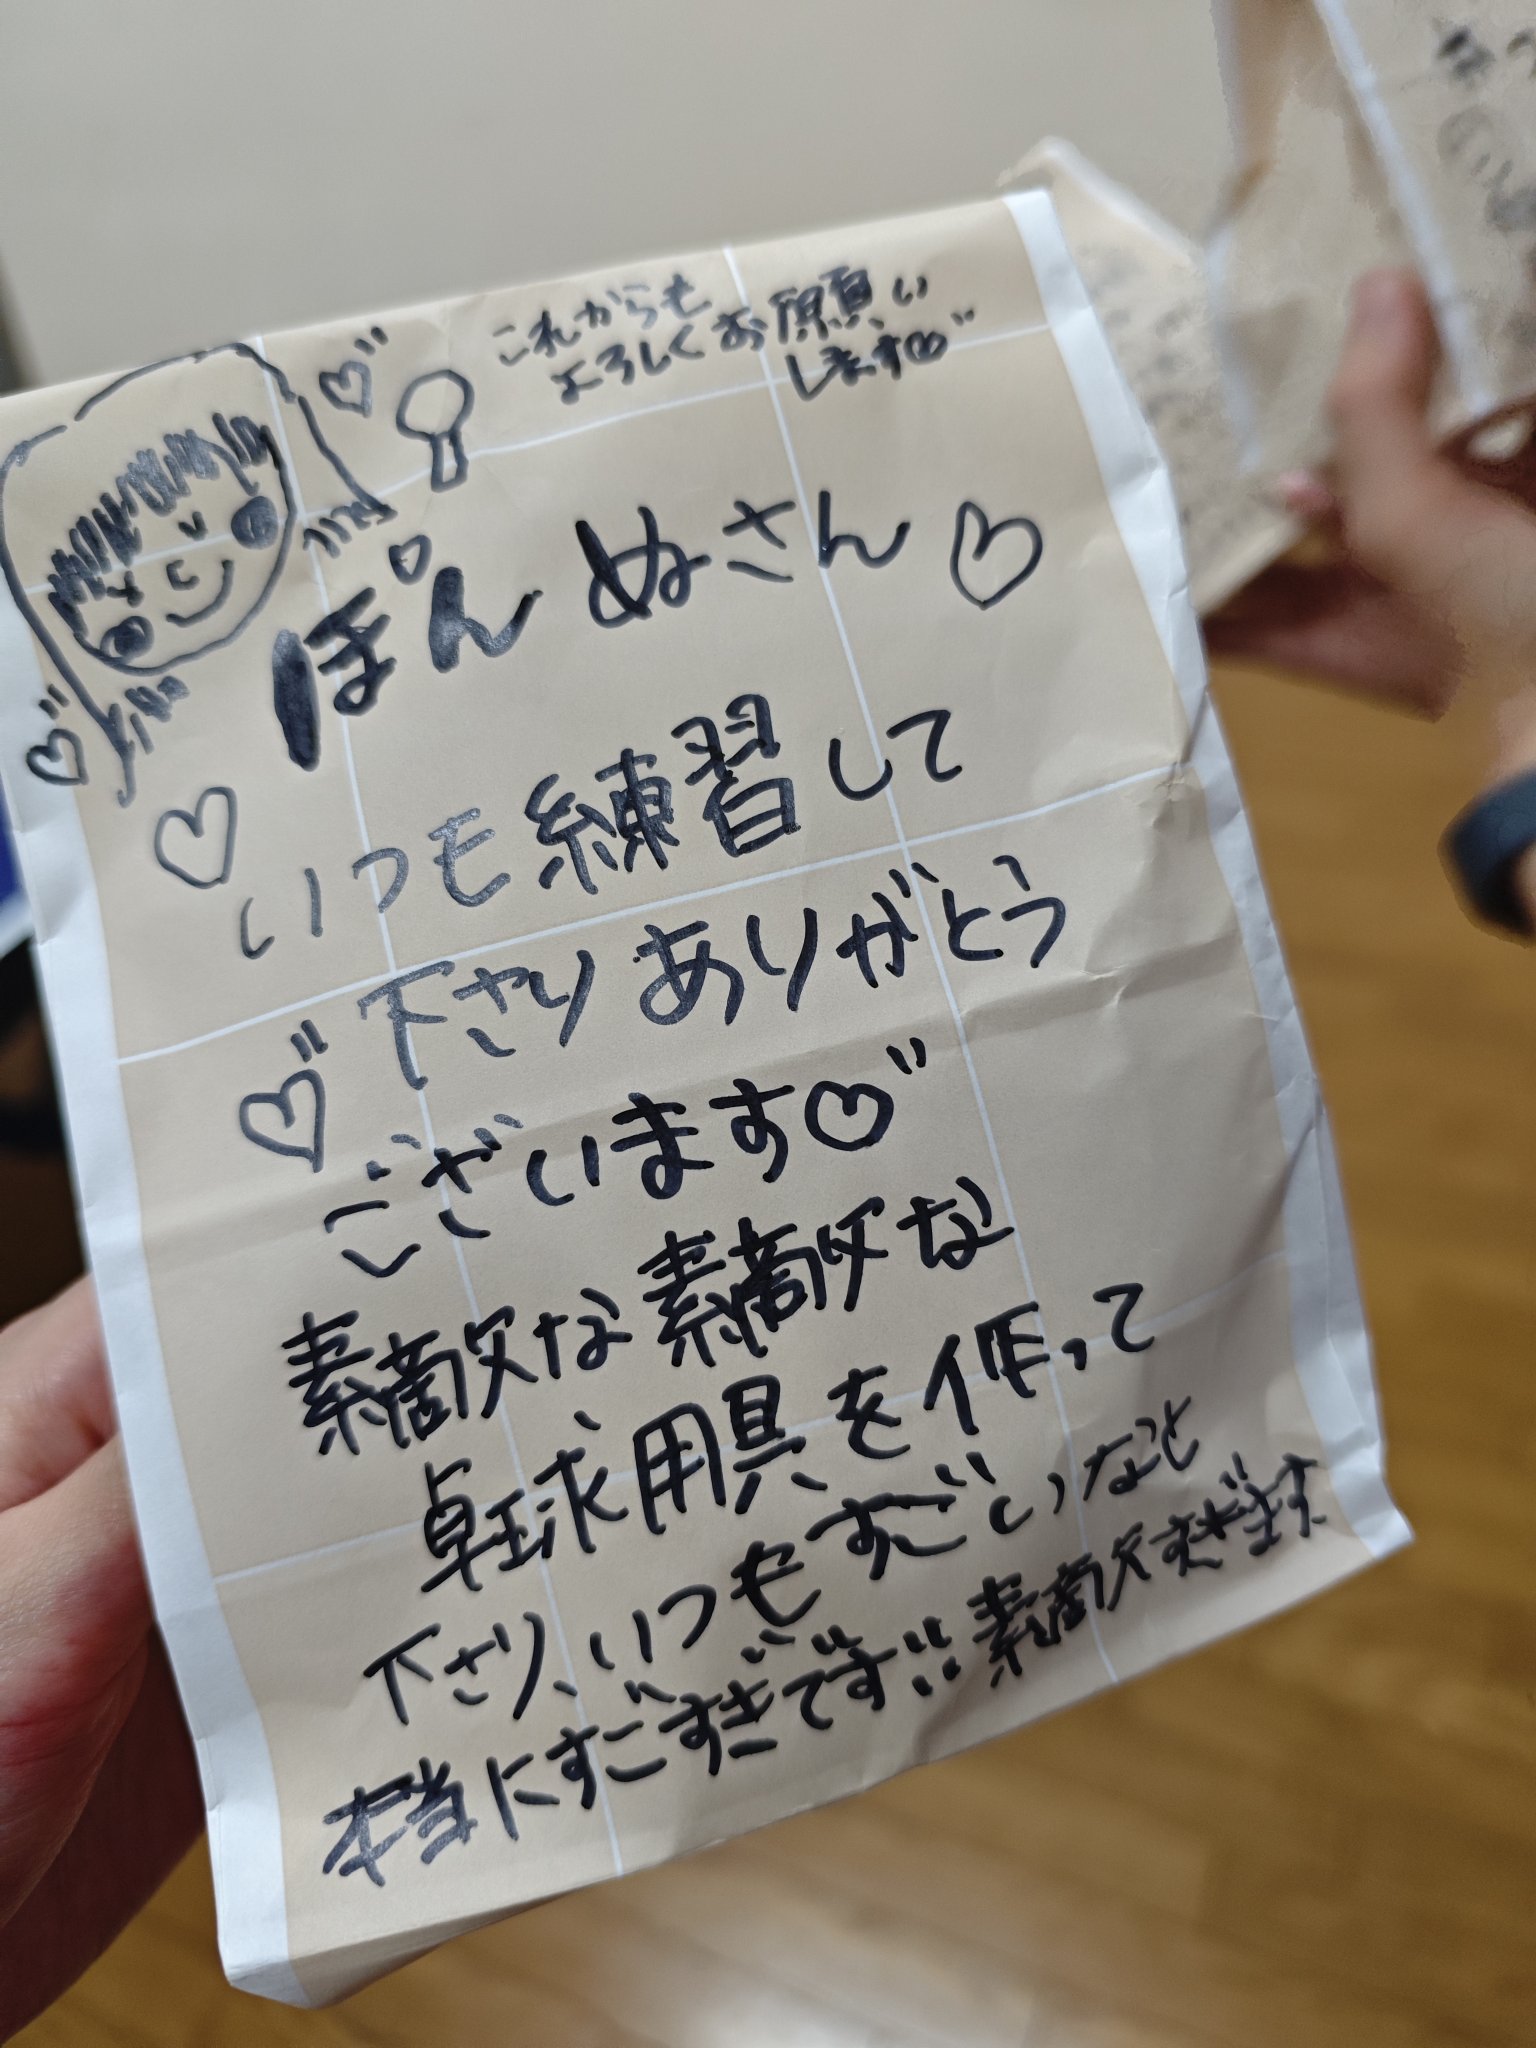 これからも
よろしくお願い
します♡"
ぽんぬさん♡
いつも練習して
下さりありがとう
ございます♡"
素敵な素敵な
卓球用具を作って
下さり、いつもすごいなと
本当にすごすぎです!! 素敵すぎます